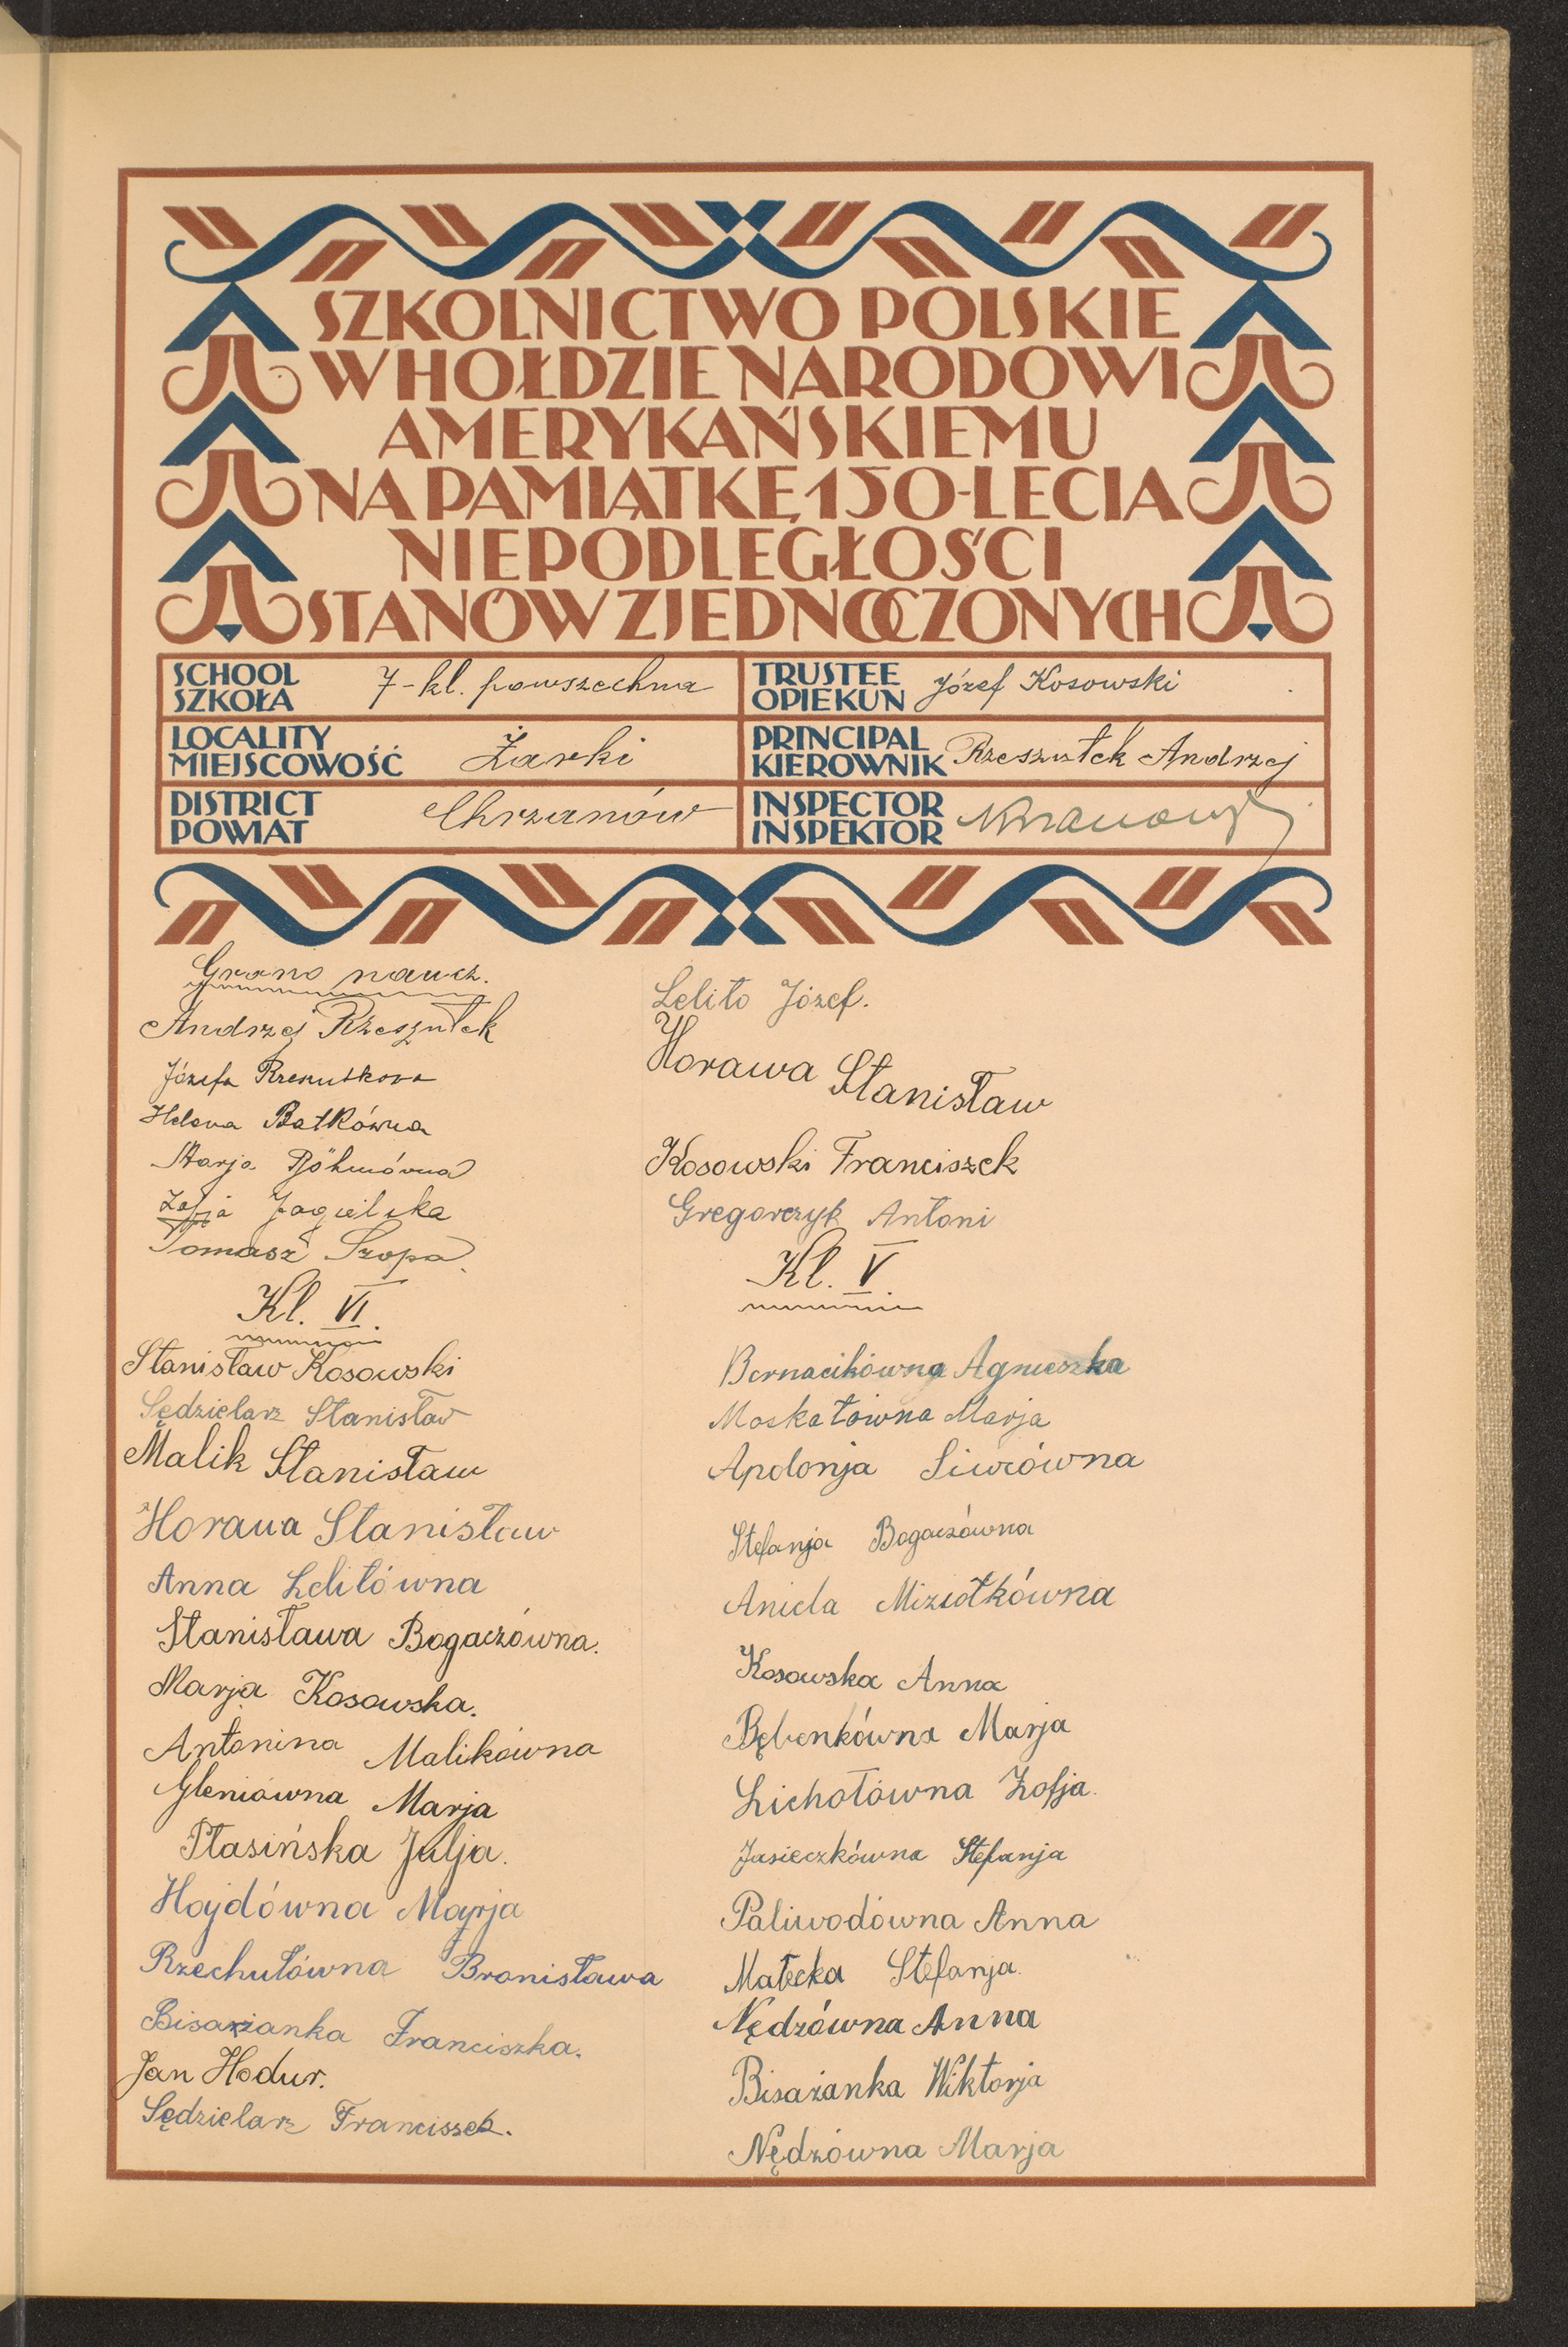 SZKOLNICTWO POLSKIE
W HOŁDZIE NARODOWI
AMERYKAŃSKIEMU
NA PAMIĄTKĘ 150-LECIA
NIEPODLEGŁOŚCI
STANÓW ZJEDNOCZONYCH
SCHOOL
SZKOŁA
7-kl. powszechna
TRUSTEE
OPIEKUN
Józef Kosowski
LOCALITY
MIEJSCOWOŚĆ
Żarki
PRINCIPAL
KIEROWNIK
Rzeszutek Andrzej
DISTRICT
POWIAT
Chrzanów
INSPECTOR
INSPEKTOR
Grono naucz.
Andrzej Rzeszutek
Józefa Rzeszutkowa
Helena Batkówna
Marja Böhmówna
Zofja Jagielska
Tomasz Szopa.
Kl. VI.
Stanisław Kosowski
Sędzielarz Stanisław
Malik Stanisław
Horawa Stanisław
Anna Lelitówna
Stanisława Bogaczówna.
Marja Kosowska.
Antonina Malikówna
Gleniówna Marja
Ptasińska Julja.
Hojdówna Marja
Rzechutówna Bronisława
Bisażanka Franciszka.
Jan Hodur.
Sędzielarz Franciszek.
Lelito Józef.
Horawa Stanisław
Kosowski Franciszek
Gregorczyk Antoni
Kl. V.
Bernacikówna Agnieszka
Moskałówna Marja
Apolonja Siwcówna
Stefanja Bogaczówna
Aniela Miziołkówna
Kosowska Anna
Bębenkówna Marja
Lichotówna Zofja.
Jasieczkówna Stefanja
Paliwodówna Anna
Małecka Stefanja.
Nędzówna Anna
Bisażanka Wiktorja
Nędzówna Marja